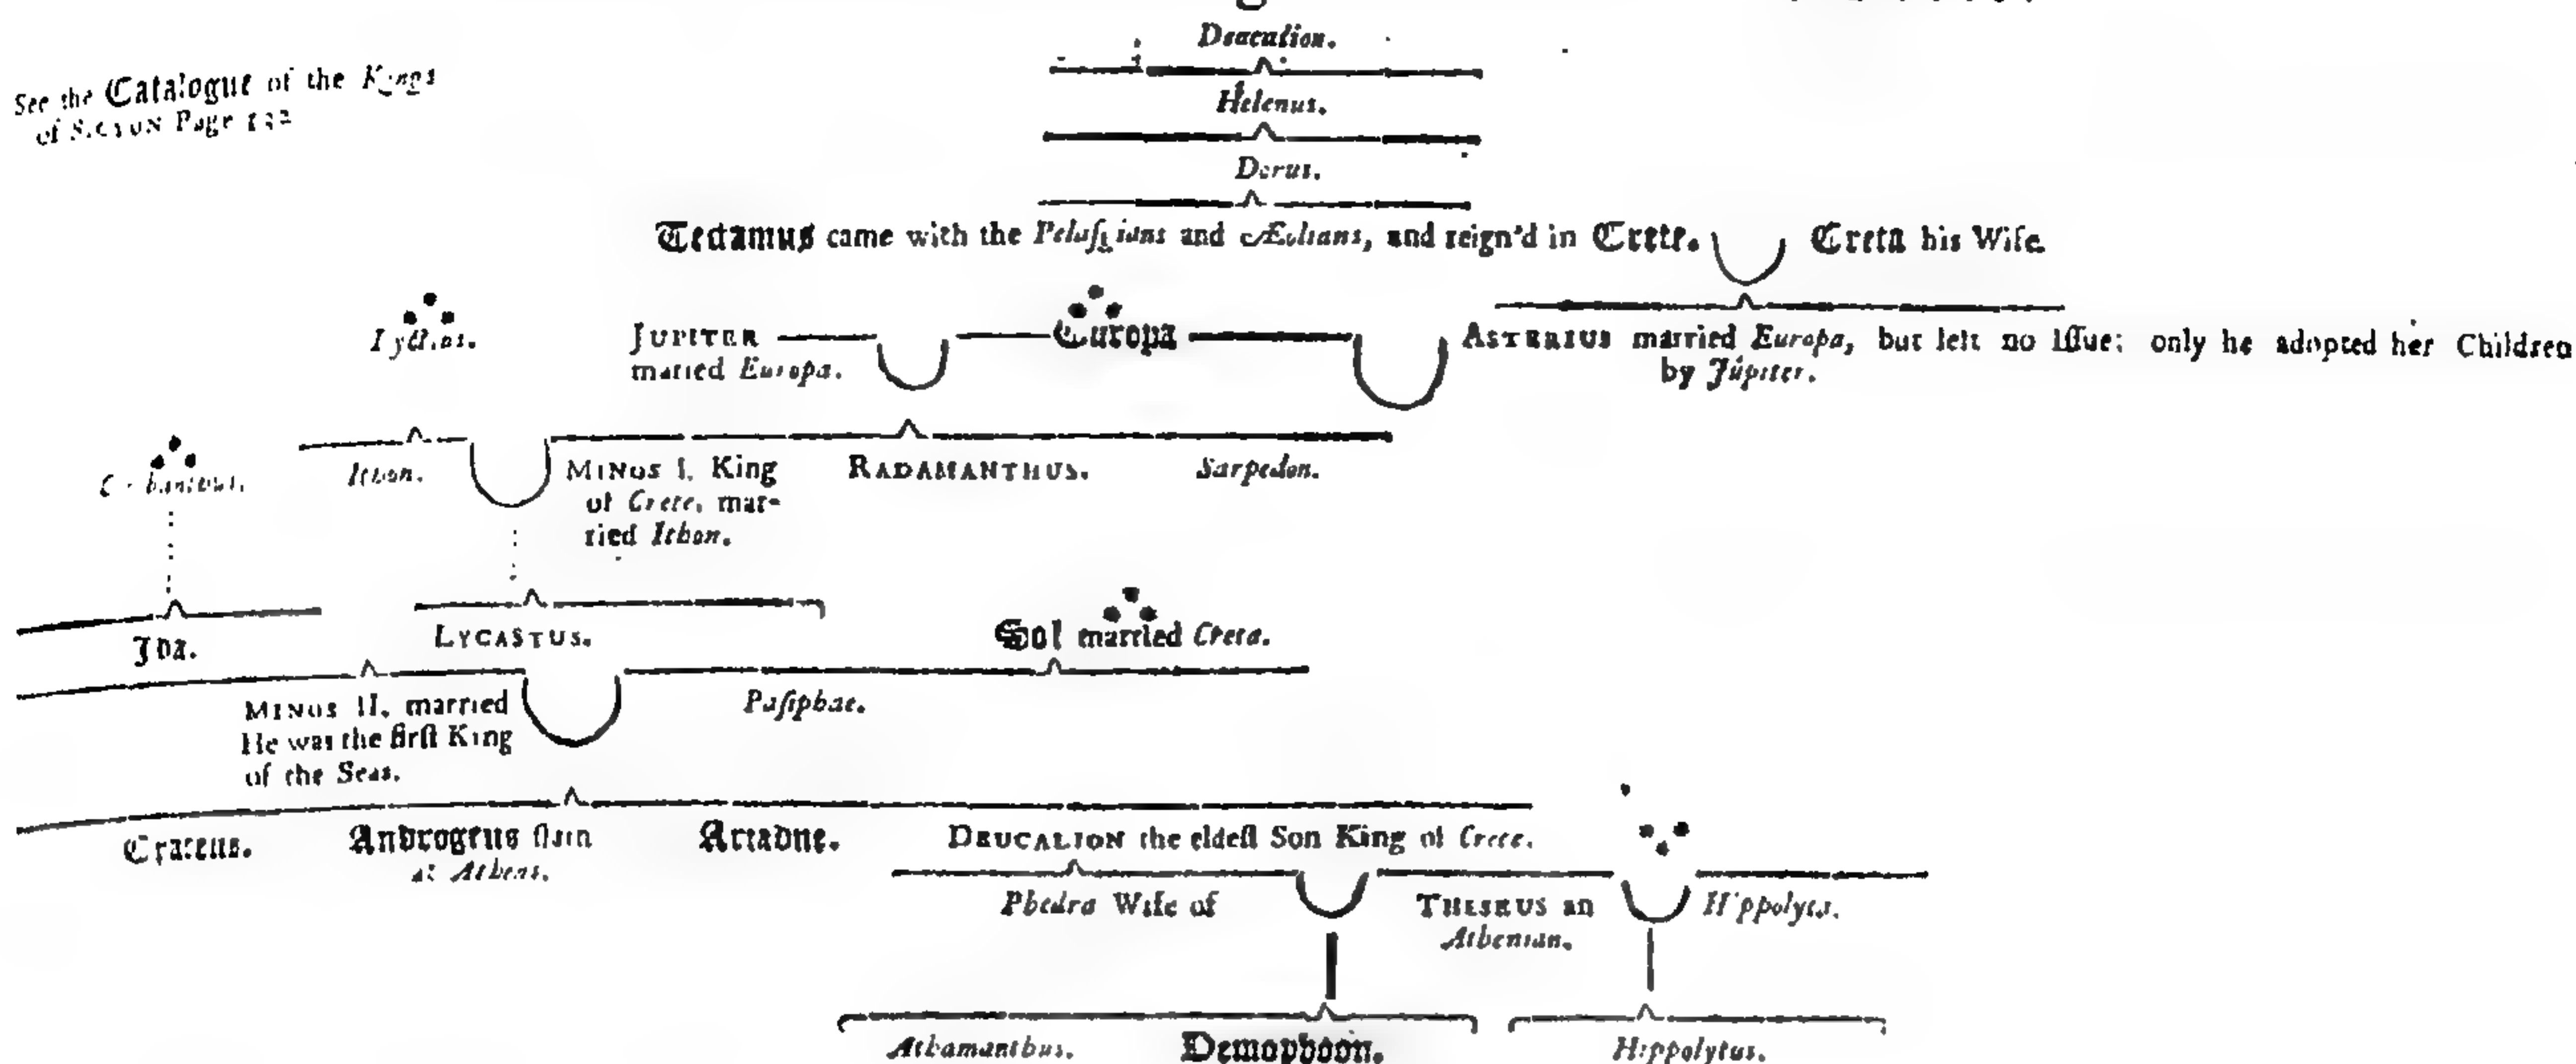 Deucalion.
See the Catalogue of the Kings
of SICYON Page 132
Helenus.
Dorus.
Tectamus came with the Pelaſgians and Æolians, and reign'd in Crete. Creta his Wife.
Lyctius.
JUPITER
maried Europa.
Europa
ASTERIUS married Europa, but left no Iſſue; only he adopted her Children
by Jupiter.
Ithon.
MINOS I. King
of Crete, mar-
ried Ithon.
RADAMANTHUS.
Sarpedon.
Ida.
LYCASTUS.
Sol married Creta.
MINOS II. married
He was the firſt King
of the Seas.
Paſiphae.
Crateus.
Androgeus ſlain
at Athens.
Ariadne.
DEUCALION the eldeſt Son King of Crete.
Phedra Wife of
THESEUS an
Athenian.
Hippolyta.
Athamanthus.
Demophoon.
Hippolytus.